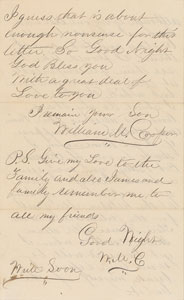 I guess that is about
enough nonsense for this
letter So Good Night
God Bless you
With a great deal of
Love to you
I remain your Son
William M. Cooper
P.S. Give my Love to the
Family and also James and
family remember me to
all my friends
Good Night
W. M. C
Write Soon